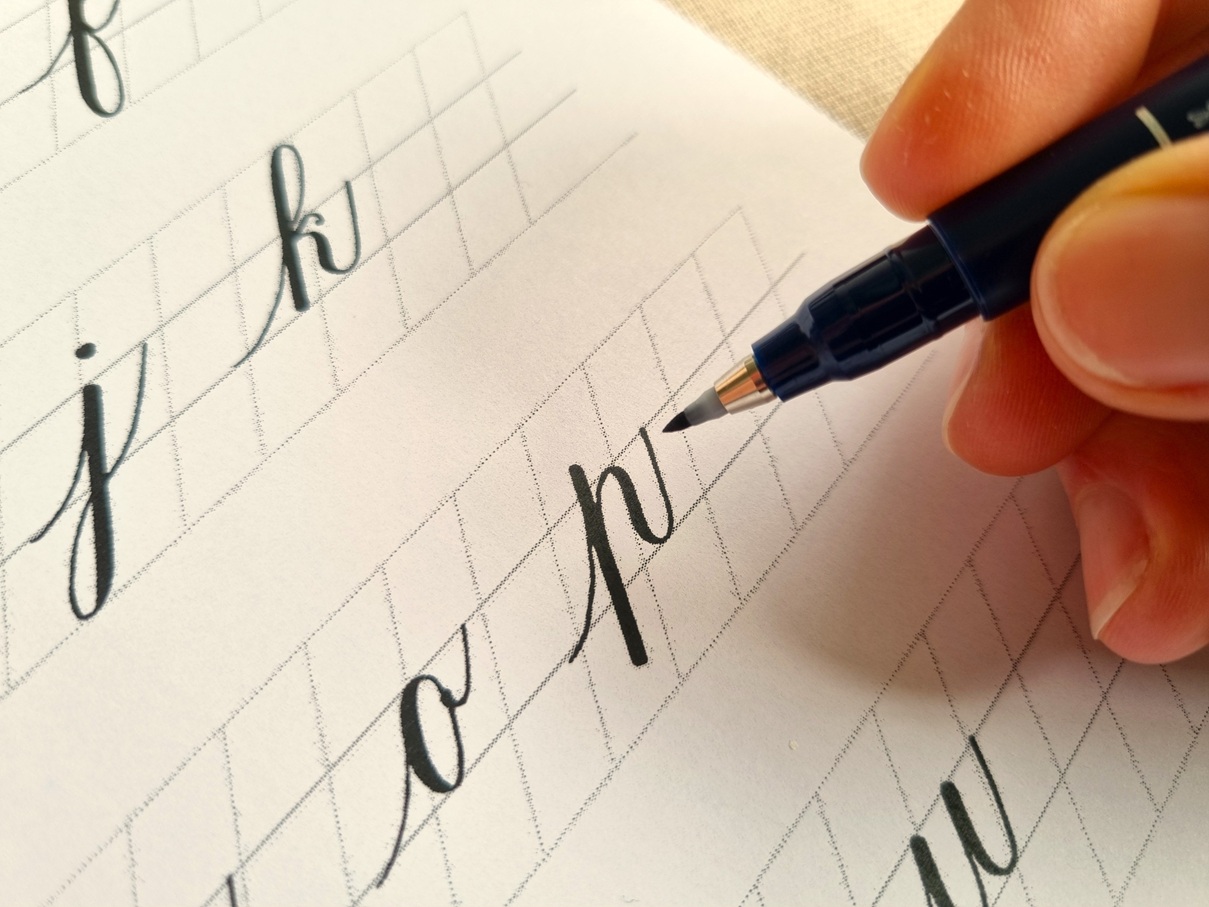 f
j k
o p
u